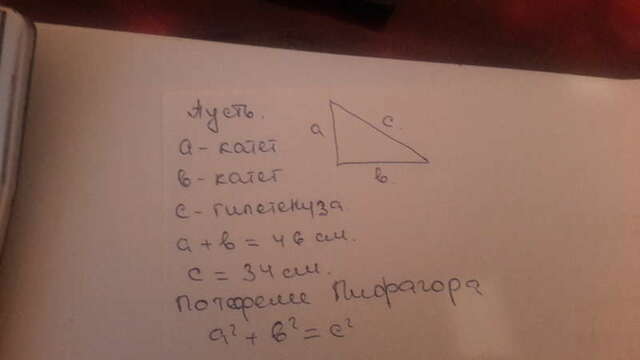 Пусть.
a - катет
в - катет
с - гипетенуза
a + в = 46 см.
с = 34 см.
По теореме Пифагора
a² + в² = с²
a
c.
в.